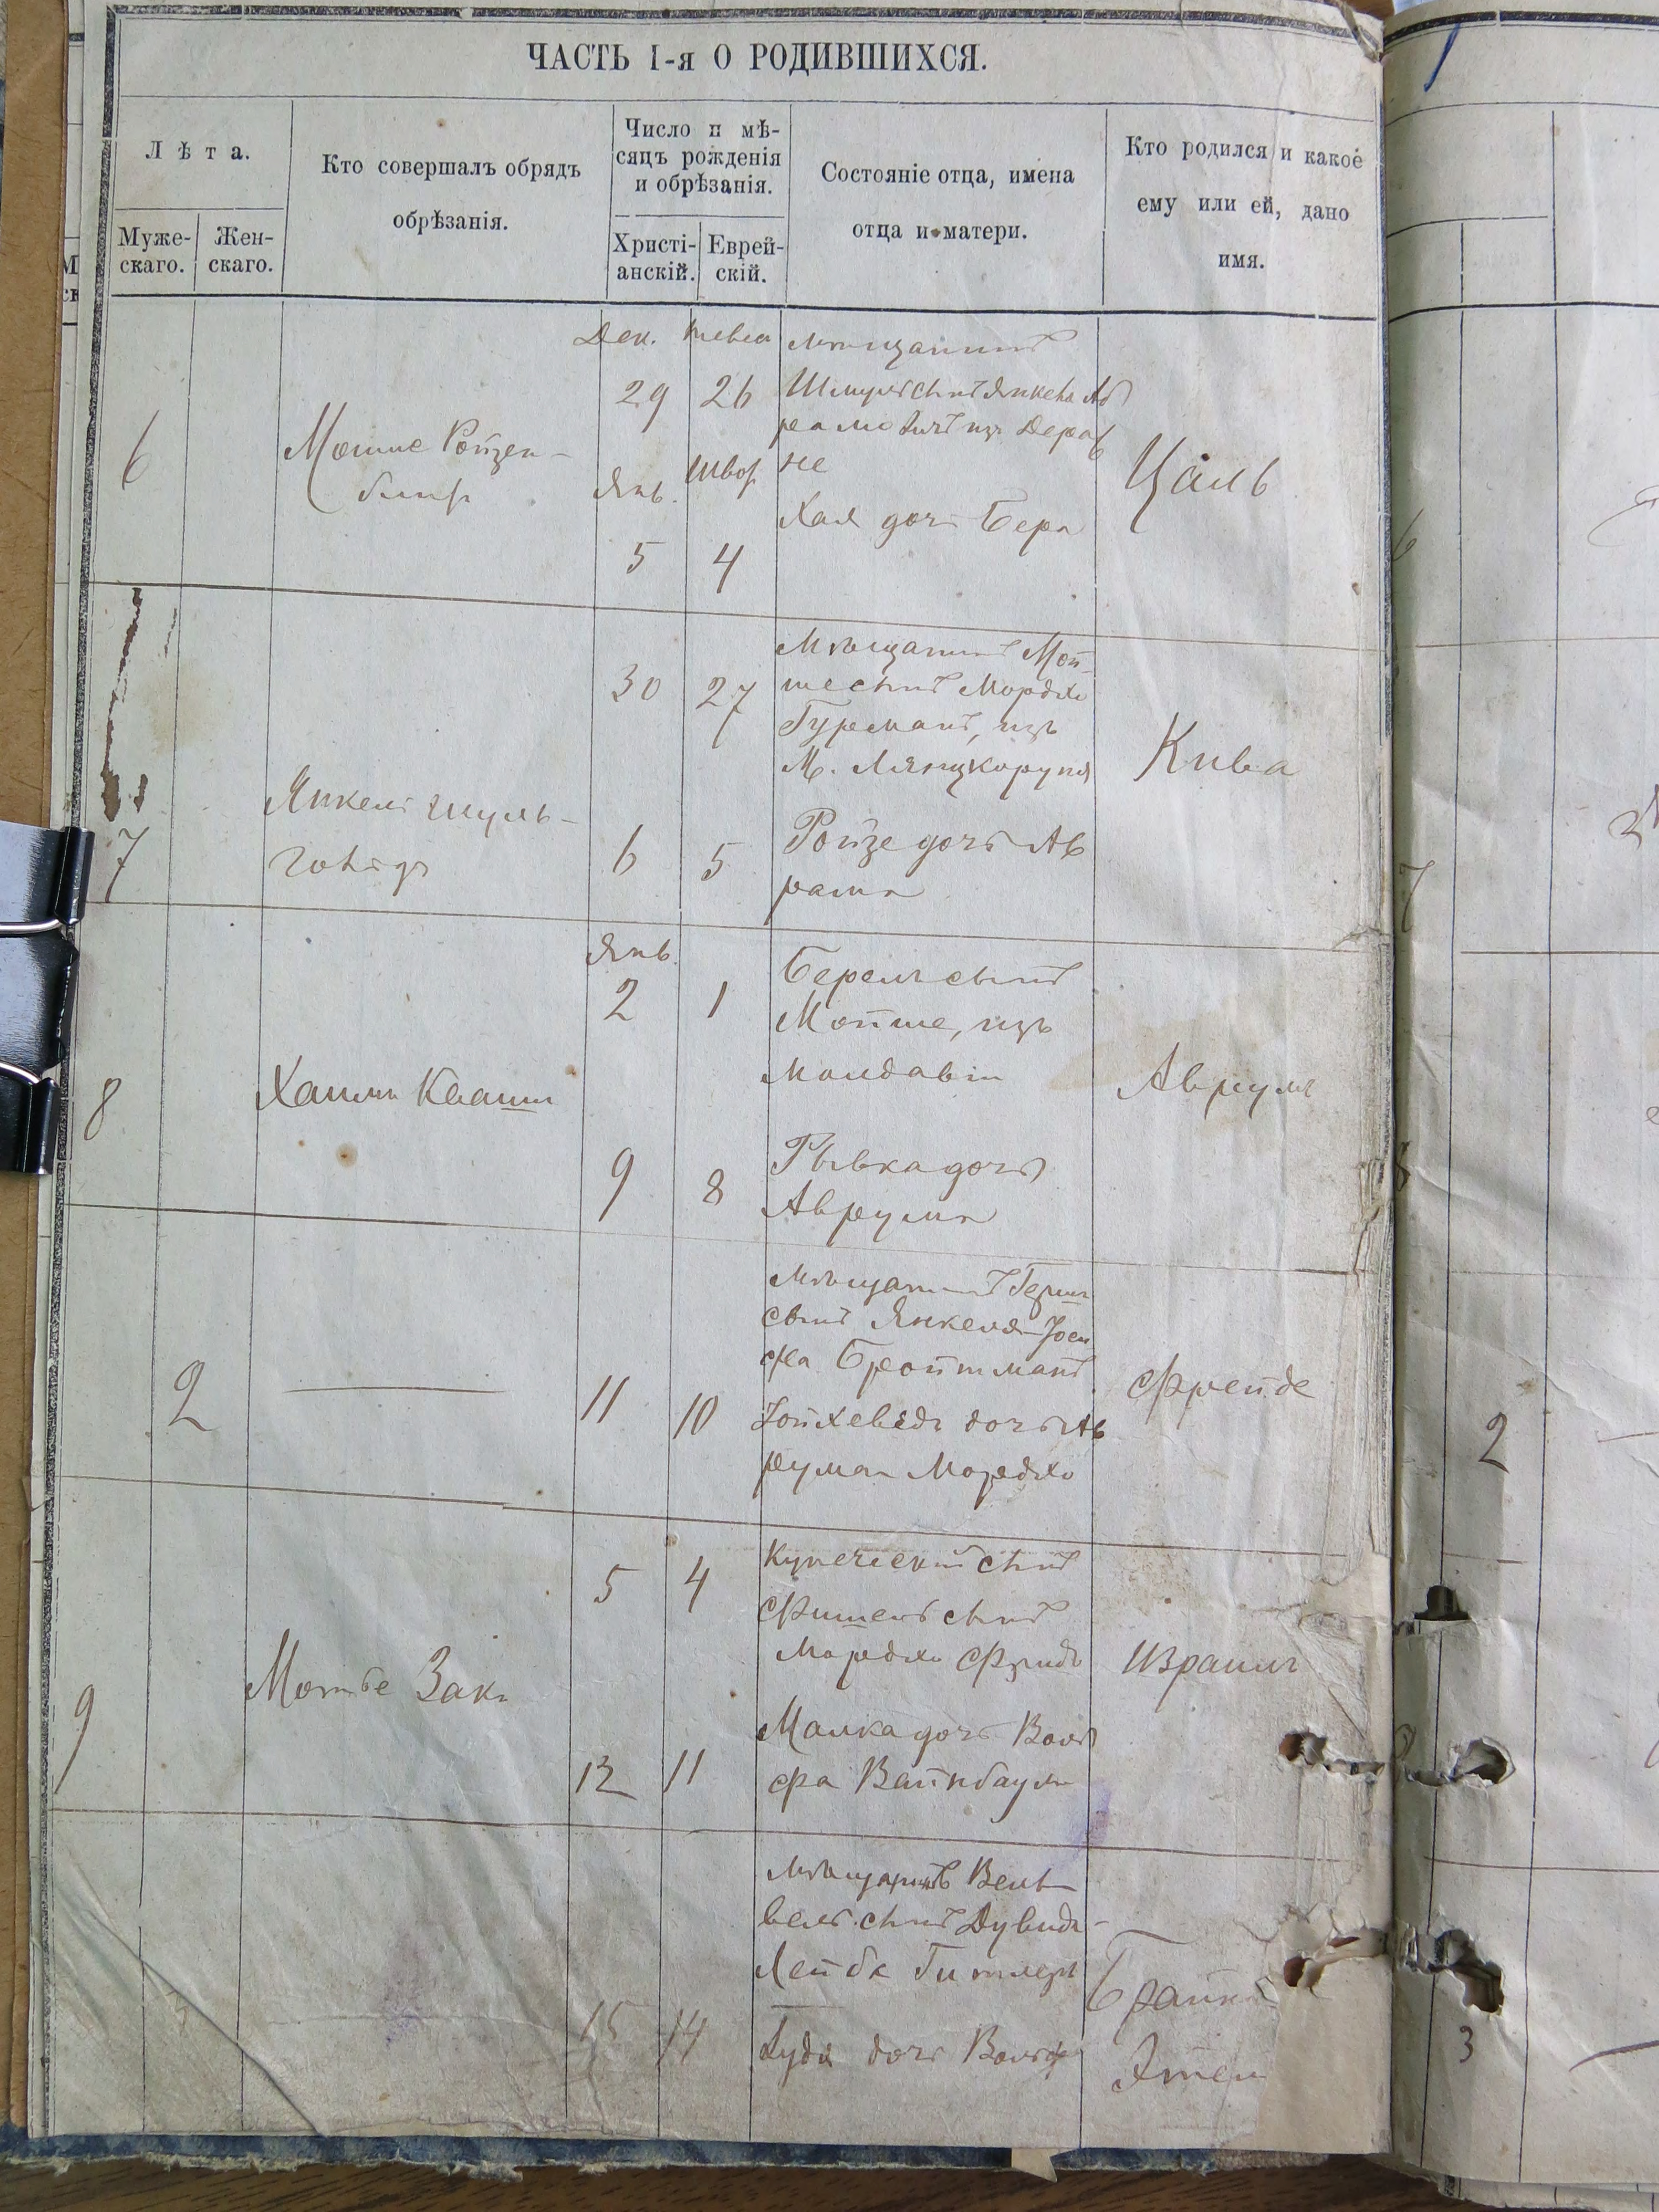 ЧАСТЬ I-я О РОДИВШИХСЯ.
Лѣта.
Муже-
скаго.
Жен-
скаго.
Кто совершалъ обрядъ
обрѣзанія.
Число и мѣ-
сяцъ рожденія
и обрѣзанія.
Христі-
анскій.
Еврей-
скій.
Состояніе отца, имена
отца и матери.
Кто родился и какое
ему или ей, дано
имя.
6
Мошие Ройзен-
Дек.
29
Янв.
5
тевеа
26
4
мѣщанинъ
Шмуль сынъ Янкеля Аб
рамовичъ изъ Дераж
не
Хая дочь Бера
Цаль
7
Янкель Шуль-
30
6
27
5
Мѣщанинъ Мой
ше сынъ Мордхо
Гурманъ, изъ
М. Лянцкоруня
Ройзе дочь Ав
рама
Кива
8
Хаимъ Кваша
Янв.
2
9
1
8
Берель сынъ
Мойше, изъ
Молдавіи
Рывка дочь
Аврума
Аврумъ
2
11
10
мѣщанинъ Герш
сынъ Янкеля-Іоси
фа Бройтманъ
Іойхеведъ дочь Ав
рума Мордхо
Фрейде
9
Мотье Закъ
5
12
4
11
Купеческій сынъ
Фишель сынъ
Мордхо Фридъ
Малка дочь Воль
фа Вайнбаумъ
Израиль
15
14
мѣщанинъ Вель
вель сынъ Дувидъ-
Лейба Гитлеръ
дочь Вольф
Брайна
Этель
7
2
3